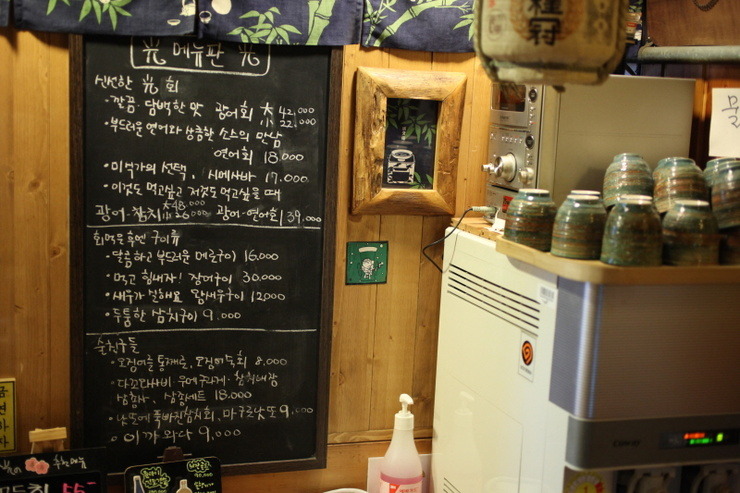 光 메뉴판 光
신선한 光 회
• 깔끔·담백한 맛 광어회 大 42,000
小 22,000
• 부드러운 연어와 상큼한 소스의 만남
연어회 18,000
• 미식가의 선택, 시메사바 17,000
• 이것도 먹고싶고 저것도 먹고싶을때
광어·참치 大 48,000 광어·연어회 39,000
회 먹은 후엔 구이류
• 달콤하고 부드러운 메로구이 16,000
• 먹고 힘내자! 장어구이 30,000
• 새우가 좋아요 왕새우구이 12,000
• 두툼한 삼치구이 9,000
술친구들
• 오징어를 통째로, 오징어숙회 8,000
• 타꼬와사비·우메구라게·
삼총사, 삼총세트 18,000
• 낫또에 퐁바진참치회, 마구로낫또 9,000
• 이까와다 9,000
물
금
연